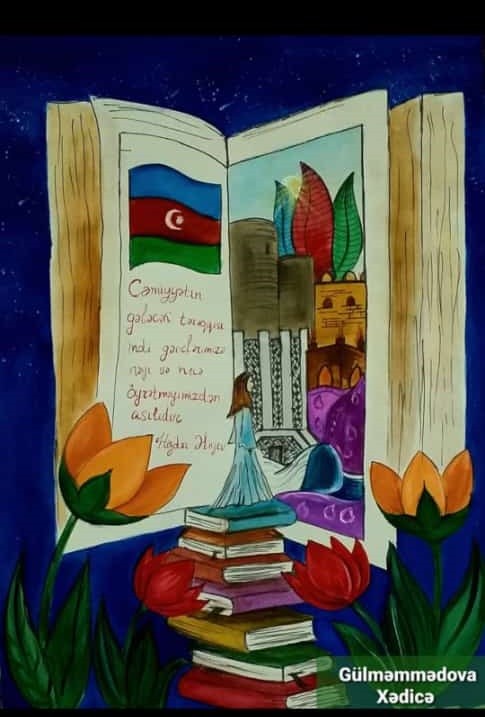 Cəmiyyətin
gələcək tərəqqisi
indi gənclərimizə
nəyi və necə
öyrətməyimizdən
asılıdır
Heydər Əliyev
Gülməmmədova
Xədicə